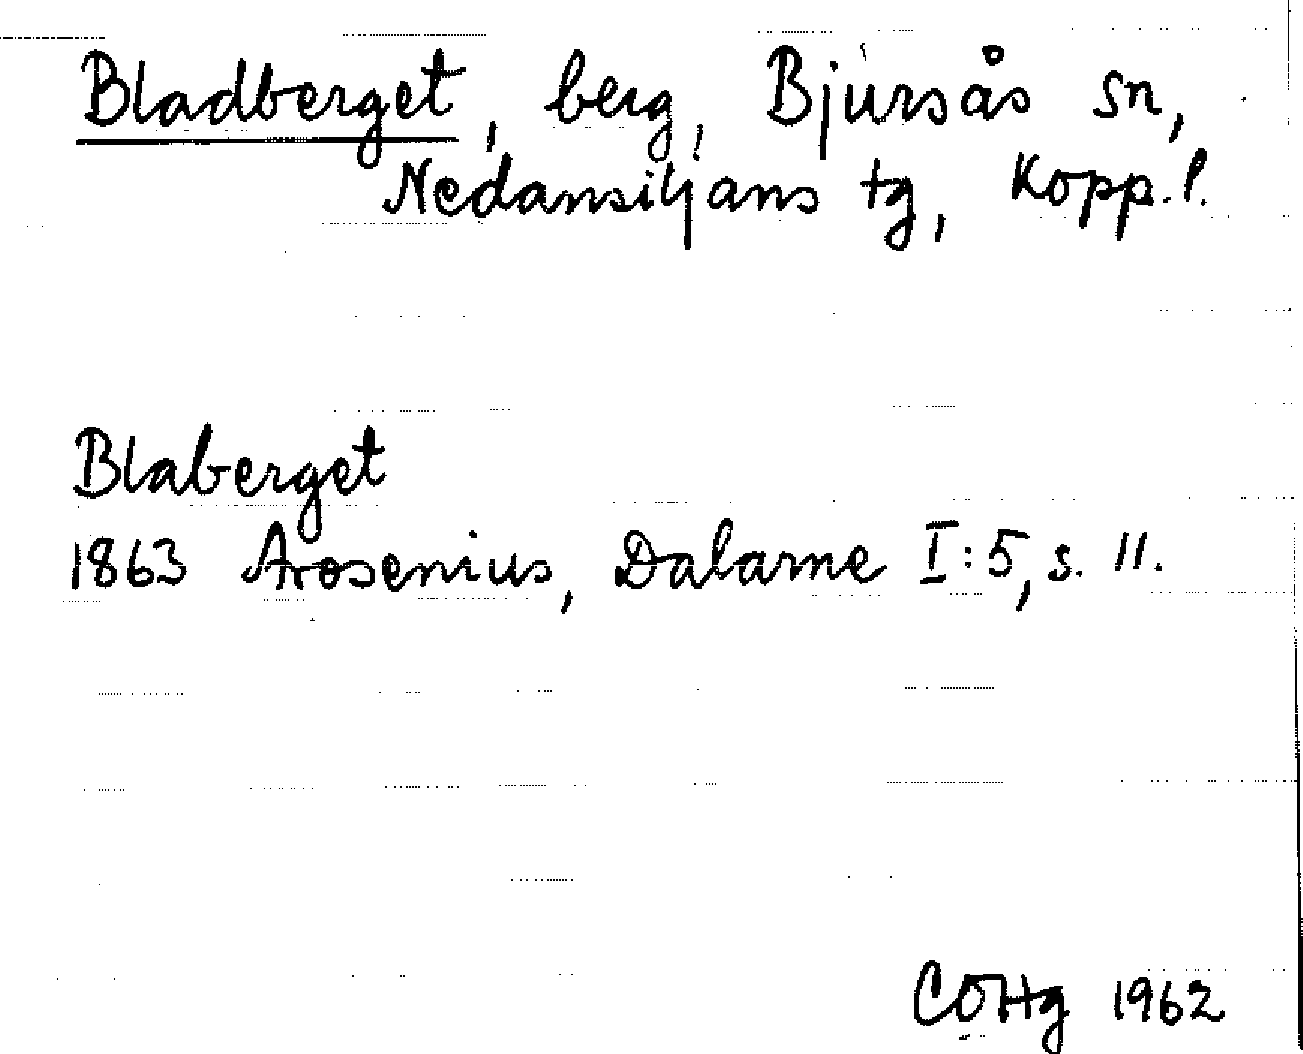 Bladberget, berg, Bjursås sn,
Nedansiljans tg, Kopp. l.
Blaberget
1863 Arosenius, Dalarne I:5, s. 11.
COHg 1962